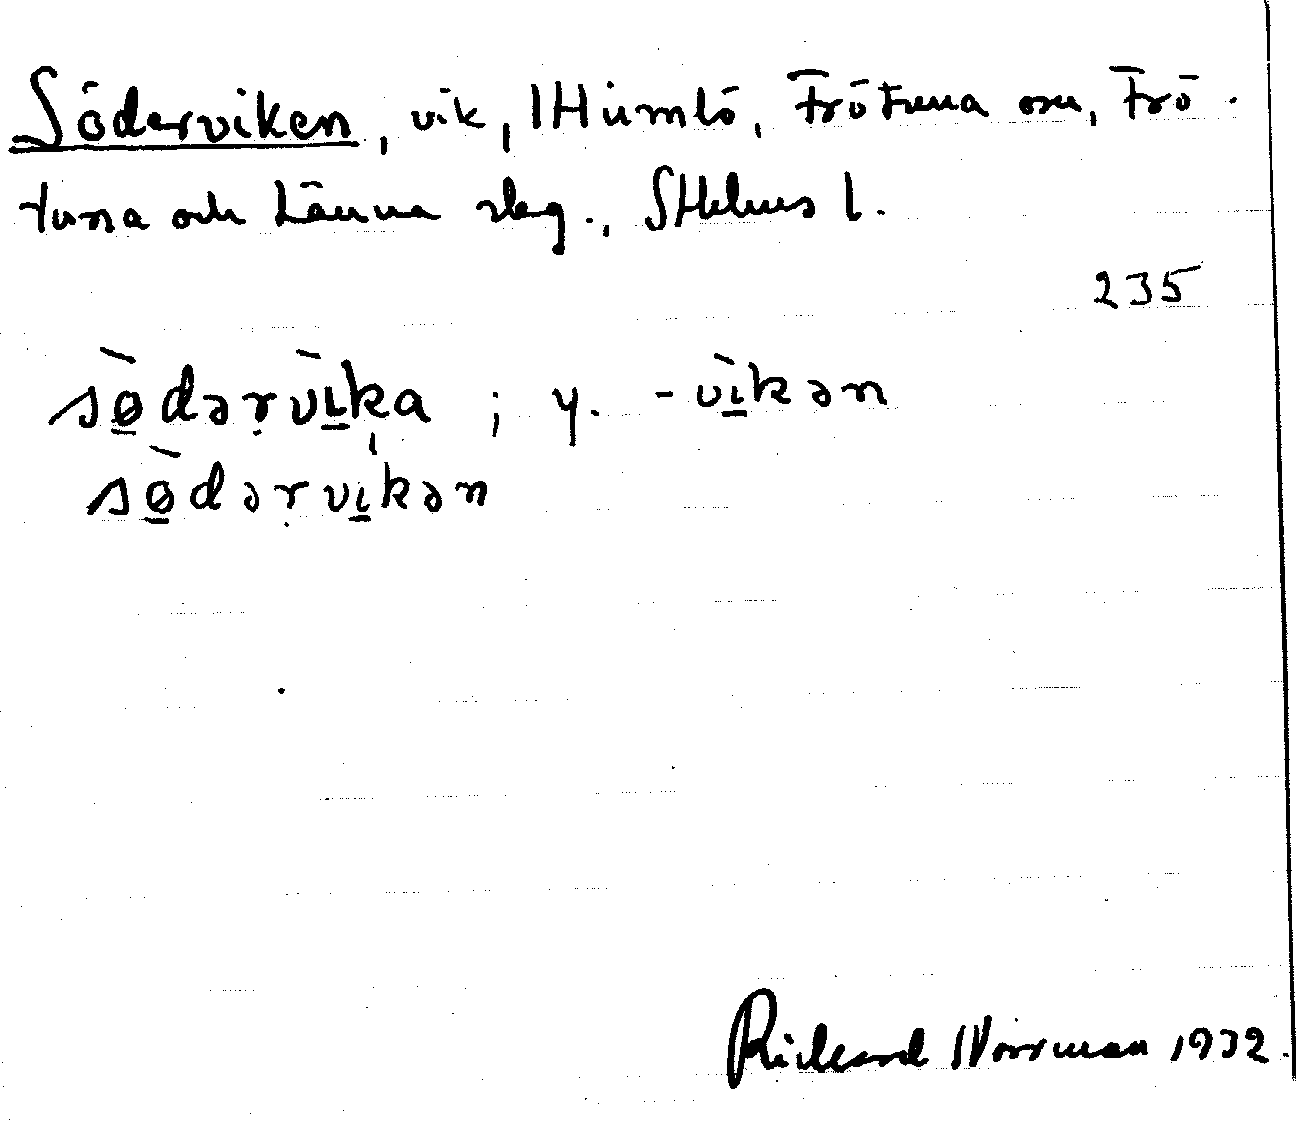 Söderviken, vik, Humlö, Frötuna sn, Frö-
tuna och Länna slag., Sthlms l.
235
sø̲̀dərv̀ɩ̲ka ; y. -vɩ̲̀kən
sø̲̀dərvɩ̲kən
Rickard Norrman 1932.